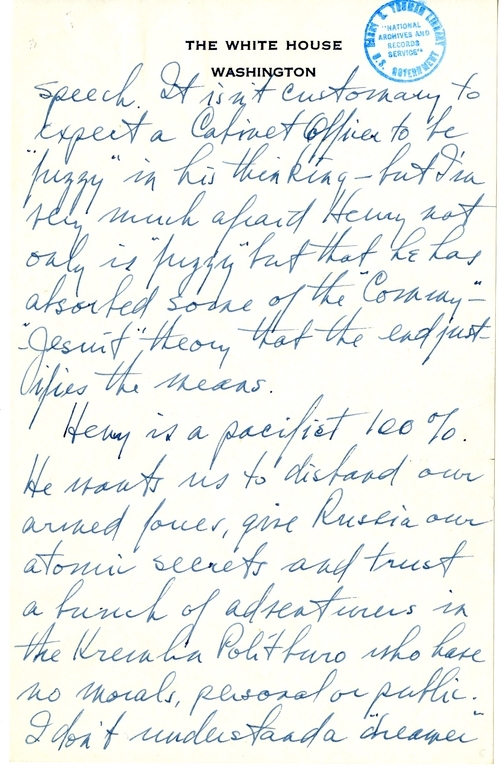 THE WHITE HOUSE
WASHINGTON
HARRY S. TRUMAN LIBRARY
"NATIONAL
ARCHIVES AND
RECORDS
SERVICE"
U.S. GOVERNMENT
speech. It isn't customary to
expect a Cabinet Officer to be
"fuzzy" in his thinking – but I'm
very much afraid Henry not
only is "fuzzy" but that he has
absorbed some of the "Commy"–
–"Jesuit" theory that the end just-
ifies the means.
Henry is a pacifist 100%.
He wants us to disband our
armed forces, give Russia our
atomic secrets and trust
a bunch of adventurers in
the Kremlin Politburo who have
no morals, personal or public.
I don't understand a "dreamer"